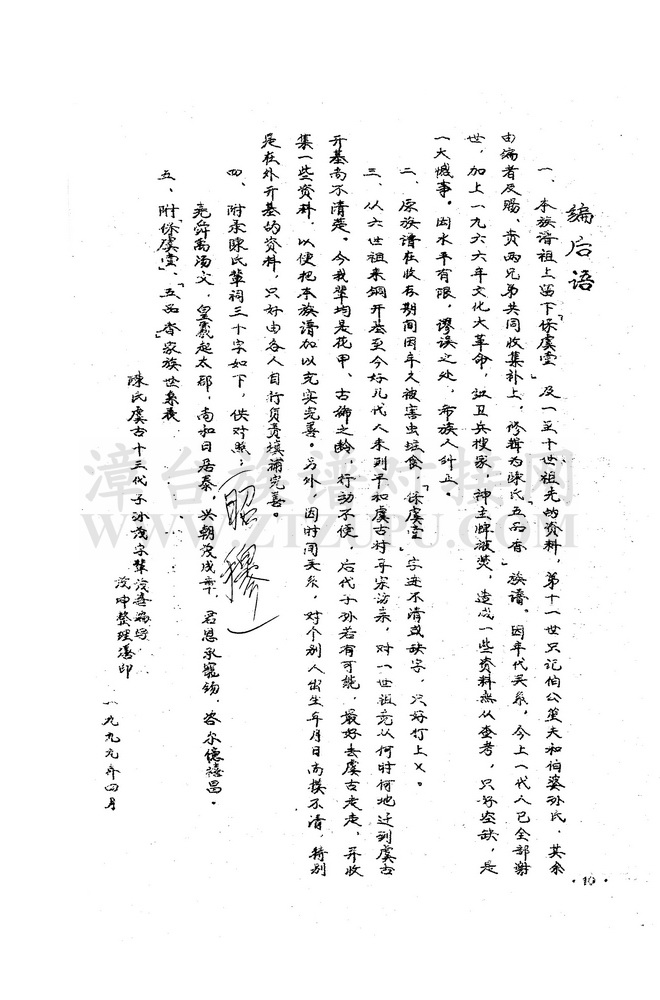 编后语
一、本族谱祖上留下“保虞堂”及一至十世祖先的资料，第十一世只记伯公 夫和伯婆孙氏，其余
由编者及赐、贵两兄弟共同收集补上，修辑为陈氏“五品香”族谱。因年代关系，今上一代人已全部谢
世，加上一九六六年文化大革命，红卫兵搜家，神主牌被焚，造成一些资料无从查考，只好空缺，是
一大憾事。因水平有限，谬误之处，希族人纠正。
二、原族谱在收存期间因年久被害虫蛀食“保虞堂”字迹不清或缺字，只好打上×。
三、从六世祖来铜开基至今好几代人未到平和虞古村寻宗访亲，对一世祖竟从何时何地迁到虞古
开基尚不清楚。今我辈均是花甲、古稀之龄，行动不便，后代子孙若有可能，最好去虞古走走，并收
集一些资料，以便把本族谱加以充实完善。另外，因时间关系，对个别人出生年月日尚摸不清，特别
是在外开基的资料，只好由各人自行负责填补完善。
四、附录陈氏辈词三十字如下，供对照：（昭穆）
尧舜禹汤文，皇羲起太 ，尚和日居泰，兴朝茂成 ，君恩承宠锡， 尔德禧昌。
五、附“保虞堂”、“五品香”家族世系表
陈氏虞古十三代子孙茂字辈茂 编写
茂坤整理 印
一九九九年四月
·10·
漳台族谱对接网
WWW.ZTZUPU.COM